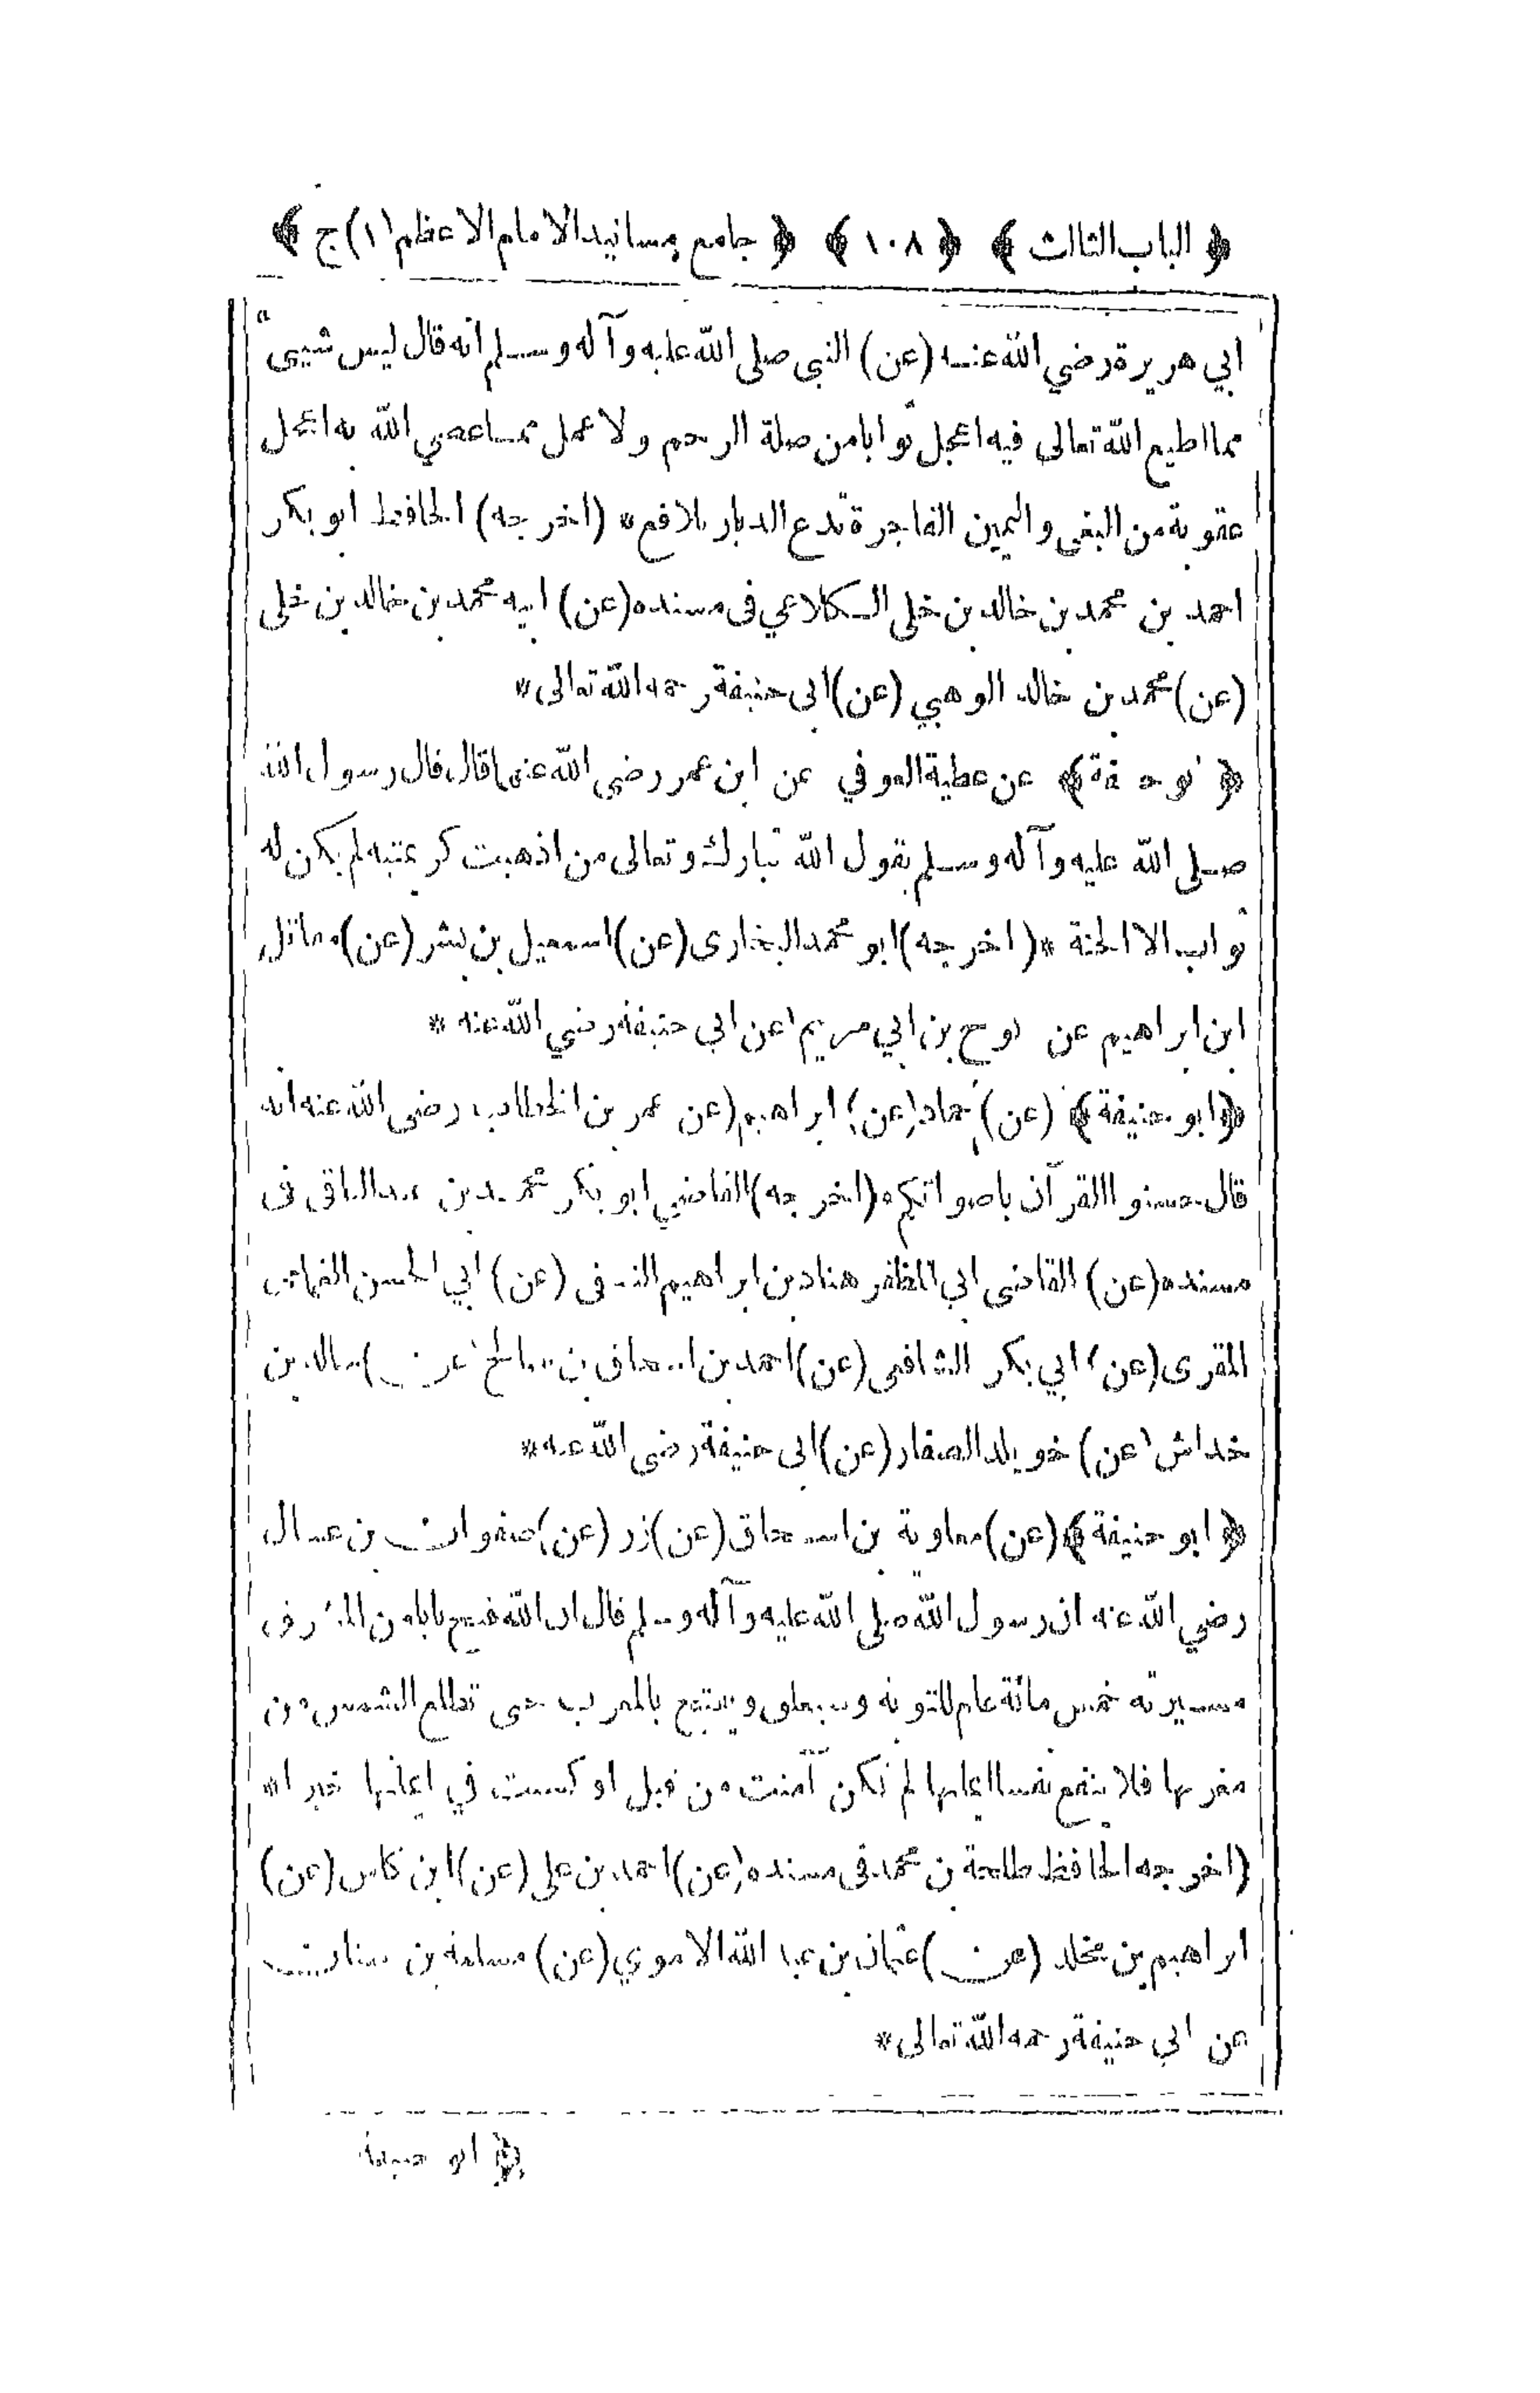 ﴿ الباب الثالث ﴾ ﴿ ١٠٨ ﴾ ﴿ جامع مسانيد الامام الاعظم (١) ج ﴾
ابي هريرة رضي الله عنه (عن) النبي صلى الله عليه وآله وسلم انه قال ليس شيئ
مما اطيع الله تعالى فيه اعجل ثوابا من صلة الرحم ولا عمل مما عصي الله به اعجل
عقوبة من البغي واليمين الفاجرة تدع الديار بلاقع * (اخرجه) الحافظ ابو بكر
احمد بن محمد بن خالد بن خلي الكلاعي في مسنده (عن) ابيه محمد بن خالد بن خلي
(عن) محمد بن خالد الوهبي (عن) ابي حنيفة رحمه الله تعالى *
عن عطية العوفي عن ابن عمر رضي الله عنهما قال قال رسول الله
صلى الله عليه وآله وسلم يقول الله تبارك وتعالى من اذهبت كريمتيه لم يكن له
ثواب الا الجنة * (اخرجه) ابو محمد البخاري (عن) اسمعيل بن بشر (عن) مقاتل
ابن ابراهيم عن نوح بن ابي مريم (عن ابي حنيفة رضي الله عنه *
﴿ ابو حنيفة ﴾ (عن) حماد (عن) ابراهيم (عن عمر بن الخطاب رضي الله عنه انه
قال حسنوا القرآن باصواتكم * (اخرجه) القاضي ابو بكر محمد بن عبد الباقي في
مسنده (عن) القاضي ابي المظفر هناد بن ابراهيم النسفي (عن) ابي الحسن
المقري (عن) ابي بكر الشافعي (عن) احمد بن اسحاق بن صالح (عن) خالد بن
خداش (عن) خويلد الصفار (عن) ابي حنيفة رضي الله عنه *
﴿ ابو حنيفة ﴾ (عن) معاوية بن اسحاق (عن) زر (عن) صفوان بن عسال
رضي الله عنه ان رسول الله صلى الله عليه وآله وسلم قال ان الله فتح بابا من
مسيرته خمس مائة عام للتوبة حتى تطلع الشمس من
مغربها فلا ينفع نفسا ايمانها لم تكن آمنت من قبل او كسبت في ايمانها خيرا *
(اخرجه الحافظ طلحة بن محمد في مسنده (عن) احمد بن علي (عن) ابن كاس (عن)
ابراهيم بن مخلد (عن) عثمان بن عبد الله الاموي (عن) مسلمة بن
عن ابي حنيفة رحمه الله تعالى *
﴿ ابو حنيفة